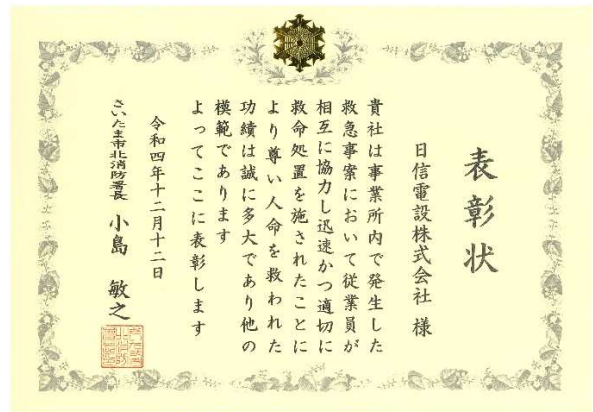 表彰状
日信電設株式会社 様
貴社は事業所内で発生した
救急事案において従業員が
相互に協力し迅速かつ適切に
救命処置を施されたことに
より尊い人命を救われた
功績は誠に多大であり他の
模範であります
よってここに表彰します
令和四年十二月十二日
さいたま市北消防署長 小島 敏之